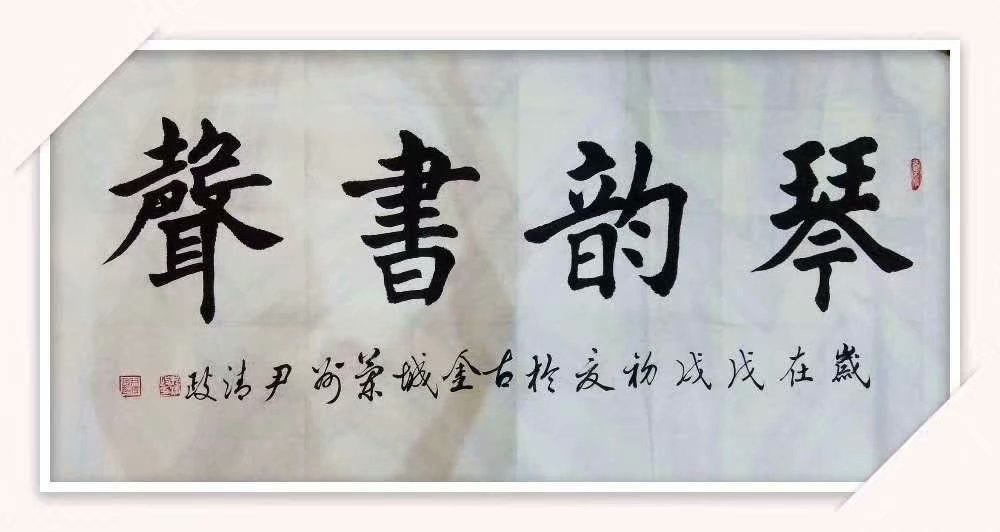 琴韵書聲
歲在戊戌初夏於古金城蘭州尹清政